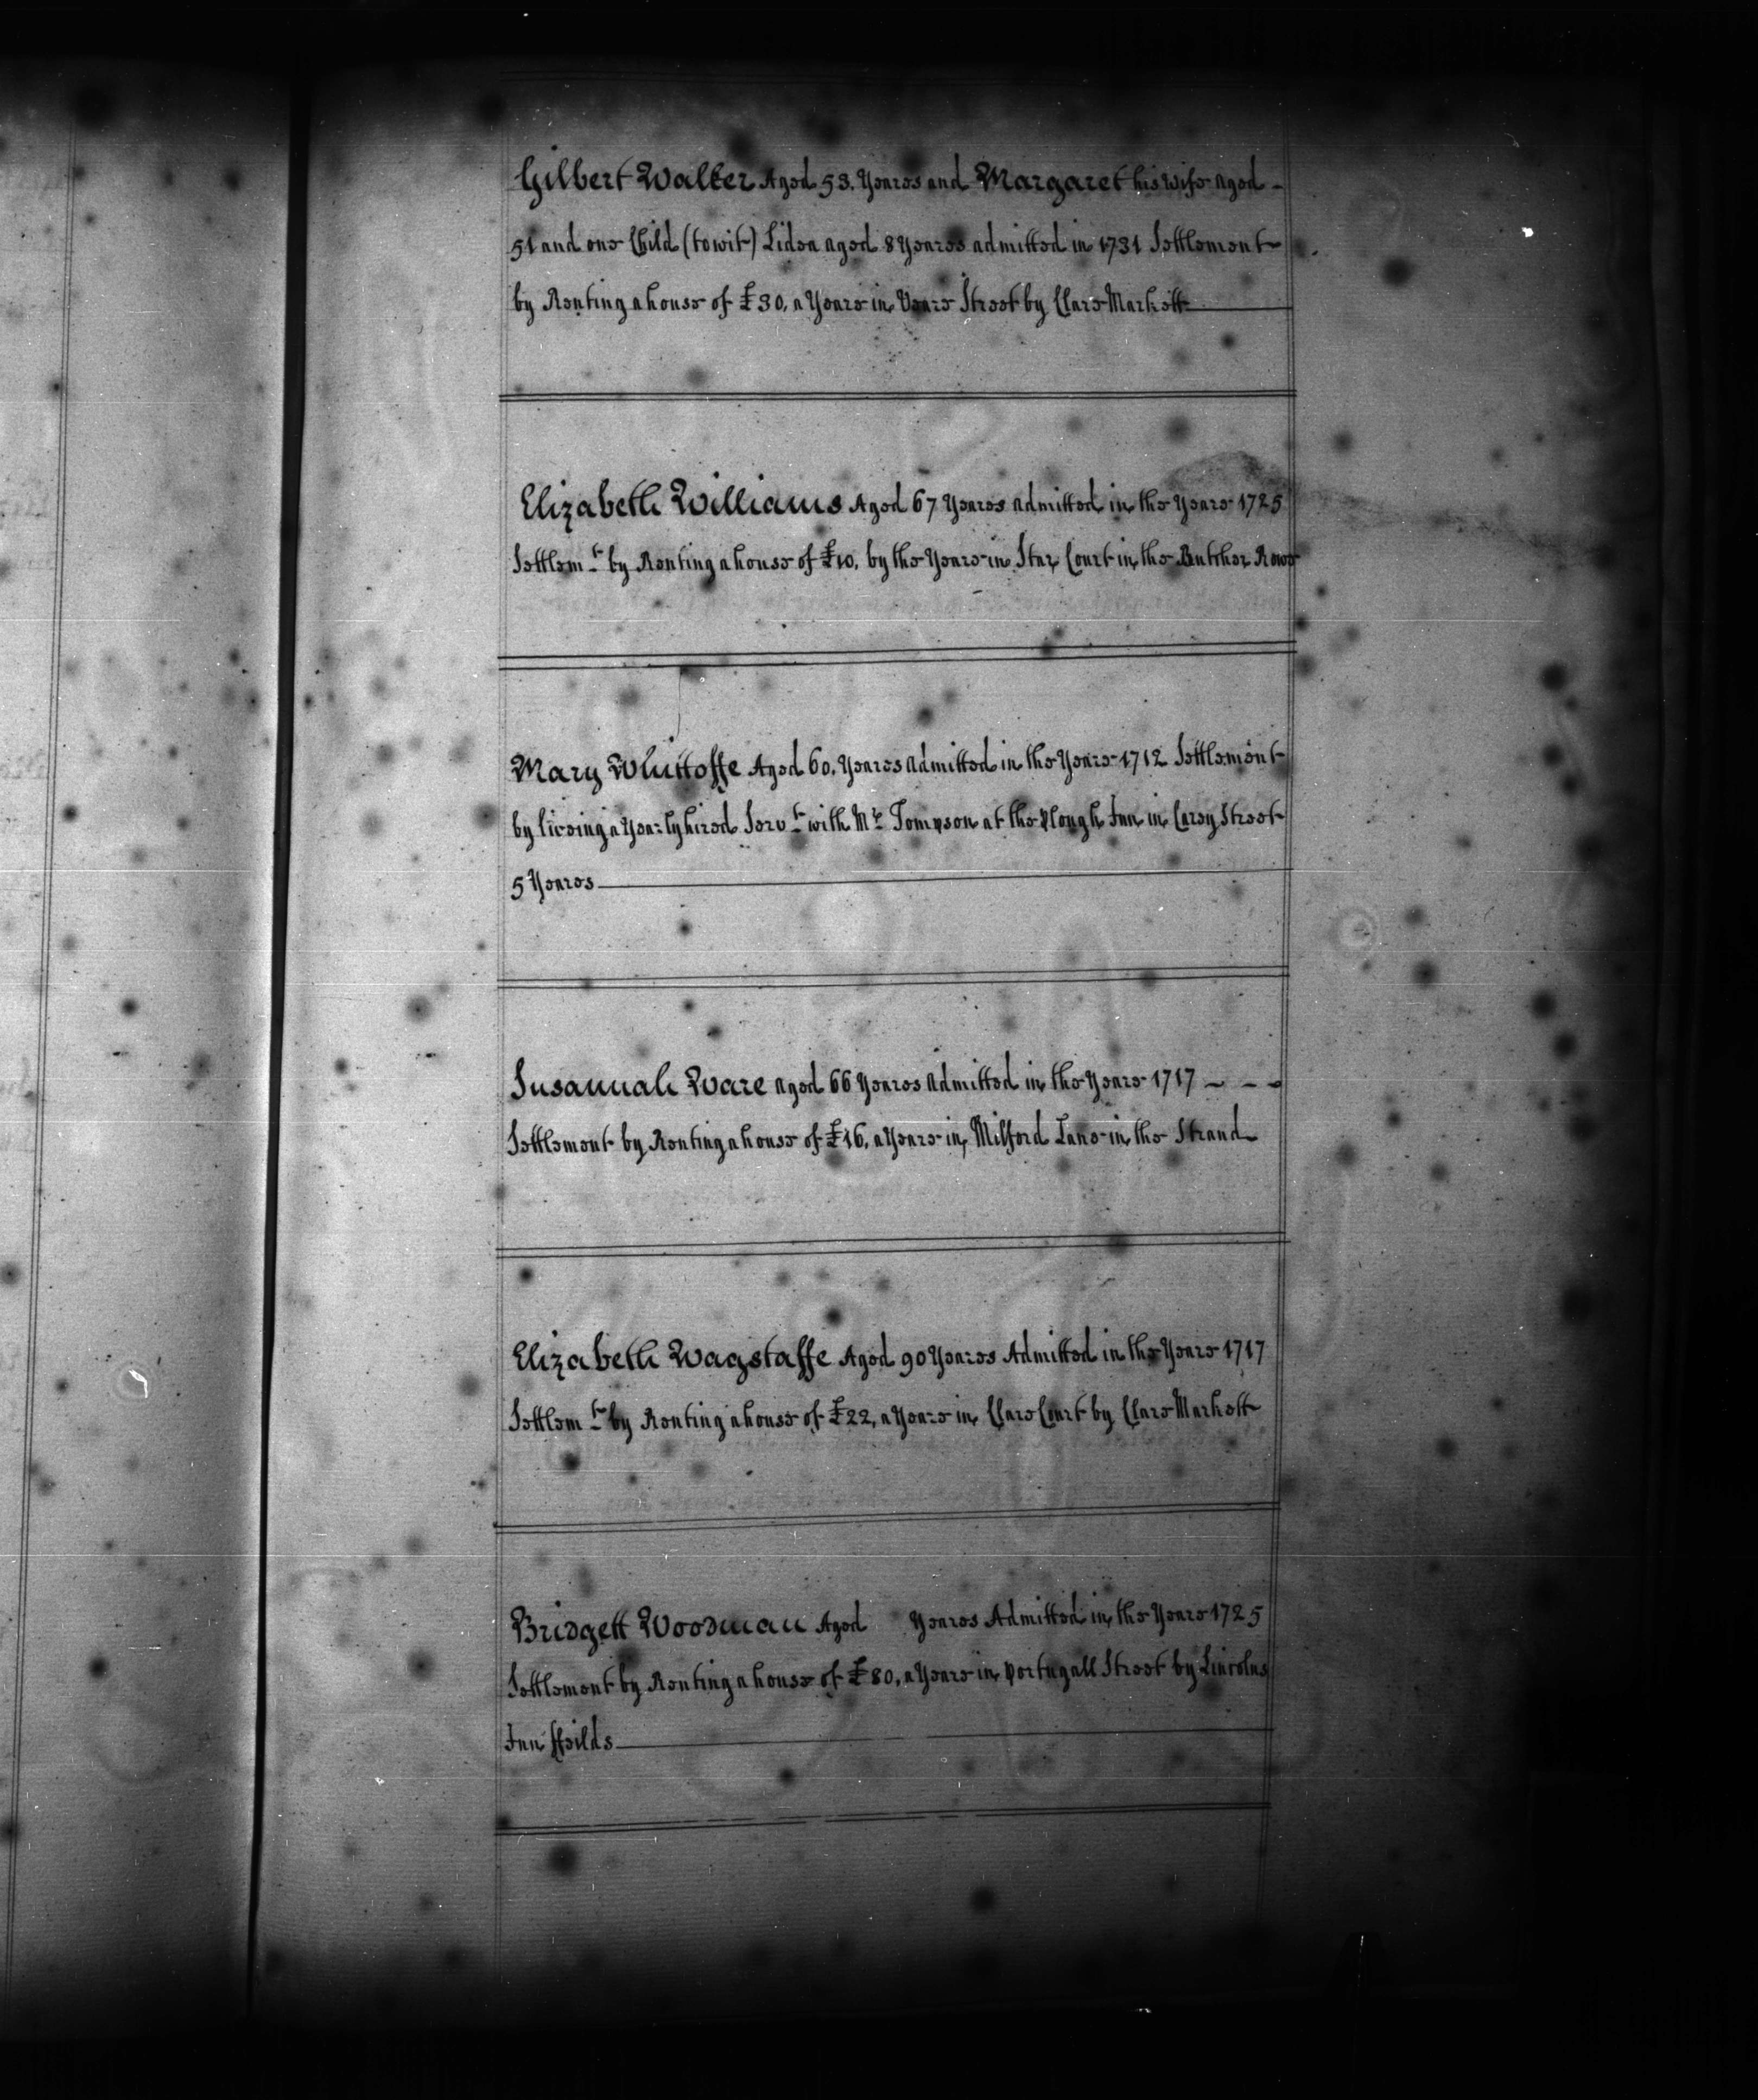 Gilbert Walker Aged 53. Yeares and Margaret his Wife aged -
51 and one Child (to wit) Lidea aged 8 Yeares admitted in 1731 Settlement
by Renting a house of £30, a Yeare in Veare Street by Clare Markett
Elizabeth Williams Aged 67 Yeares admitted in the Yeare 1725
Settlemt by Renting a house of £10, by the Yeare in Star Court in the Butcher Rowe
Mary Whittoffe Aged 60, Yeares admitted in the Yeare 1712 Settlement
by liveing a Yearly hired Servt with Mr Tompson at the Plough Inn in Carey Street
5 Yeares
Susannah Ware aged 66 Yeares admitted in the Yeare 1717 - - -
Settlement by Renting a house of £16, a Yeare in Milford Lane in the Strand
Elizabeth Wagstaffe Aged 90 Yeares Admitted in the Yeare 1717
Settlemt by Renting a house of £22, a Yeare in Clare Court by Clare Markett
Bridgett Woodman Aged Yeares Admitted in the Yeare 1725
Settlement by Renting a house of £80, a Yeare in Portugall Street by Lincolns
Inn ffeilds